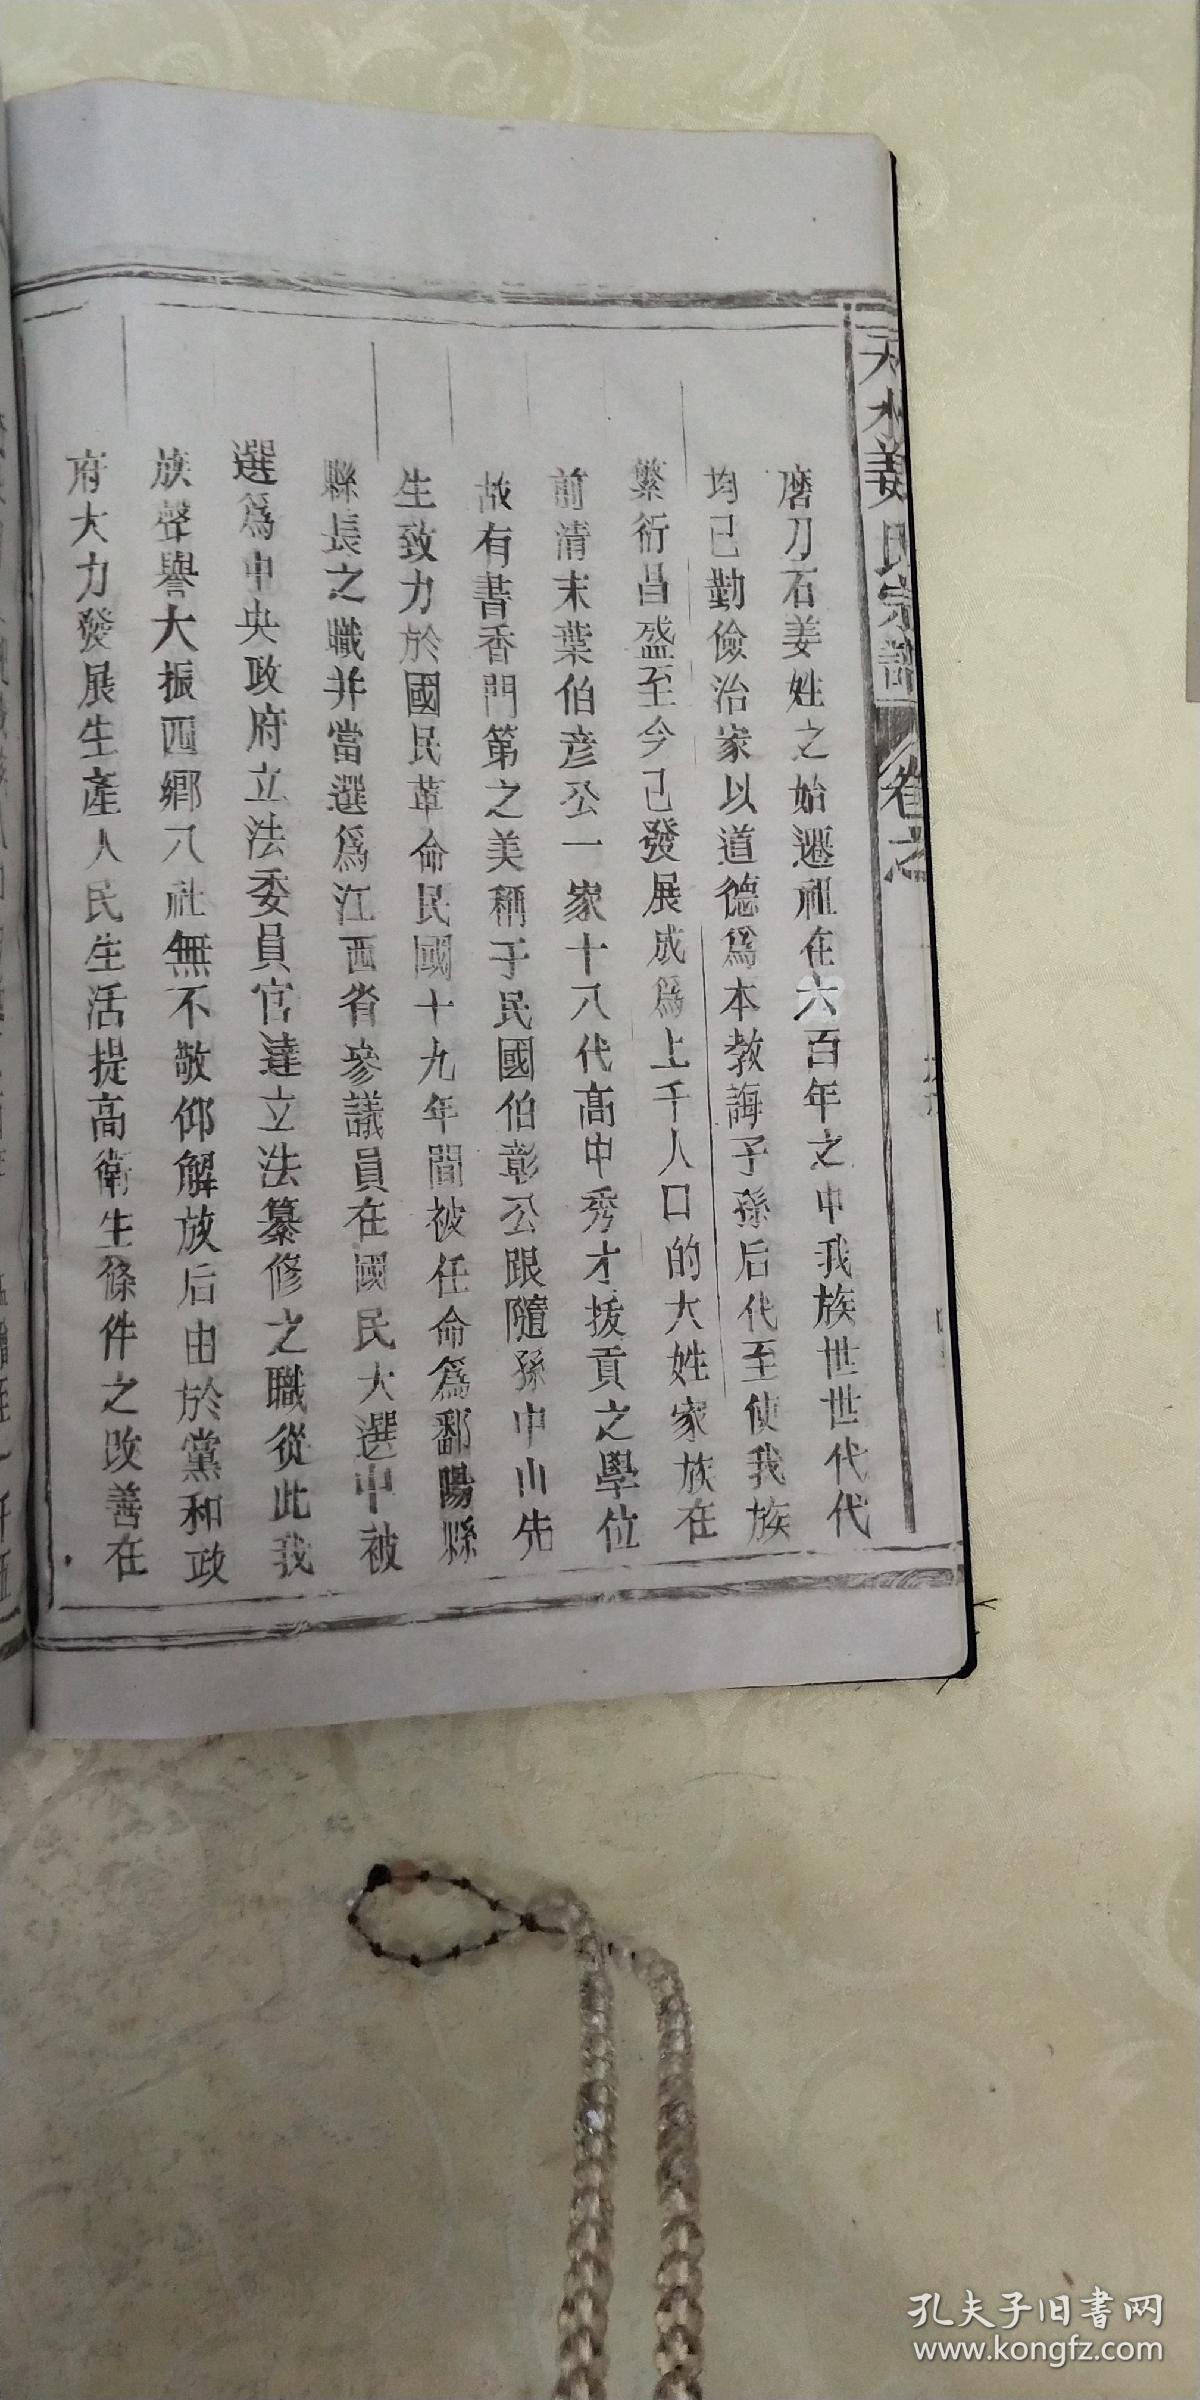 天水姜氏宗譜
卷之
磨刀石姜姓之始遷祖在六百年之中我族世世代代
均已勤儉治家以道德爲本教誨子孫后代至使我族
繁衍昌盛至今已發展成爲上千人口的大姓家族在
前清末葉伯彦公一家十八代高中秀才拔貢之學位
故有書香門第之美稱于民國伯彰公跟隨孫中山先
生致力於國民革命民國十九年間被任命爲鄱陽縣
縣長之職并當選爲江西省參議員在國民大選中被
選爲中央政府立法委員官達立法纂修之職從此我
族聲譽大振四鄉八社無不敬仰解放后由於黨和政
府大力發展生產人民生活提高衛生條件之改善在
孔夫子旧书网
www.kongfz.com